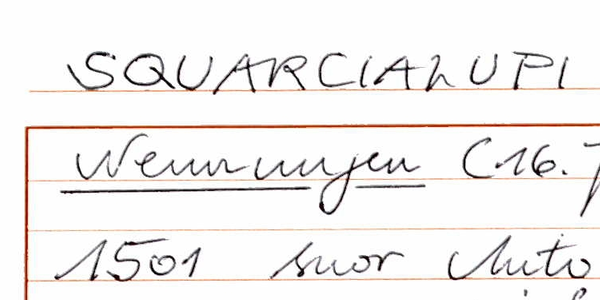 SQUARCIALUPI
Nennungen C16.
1501 suor